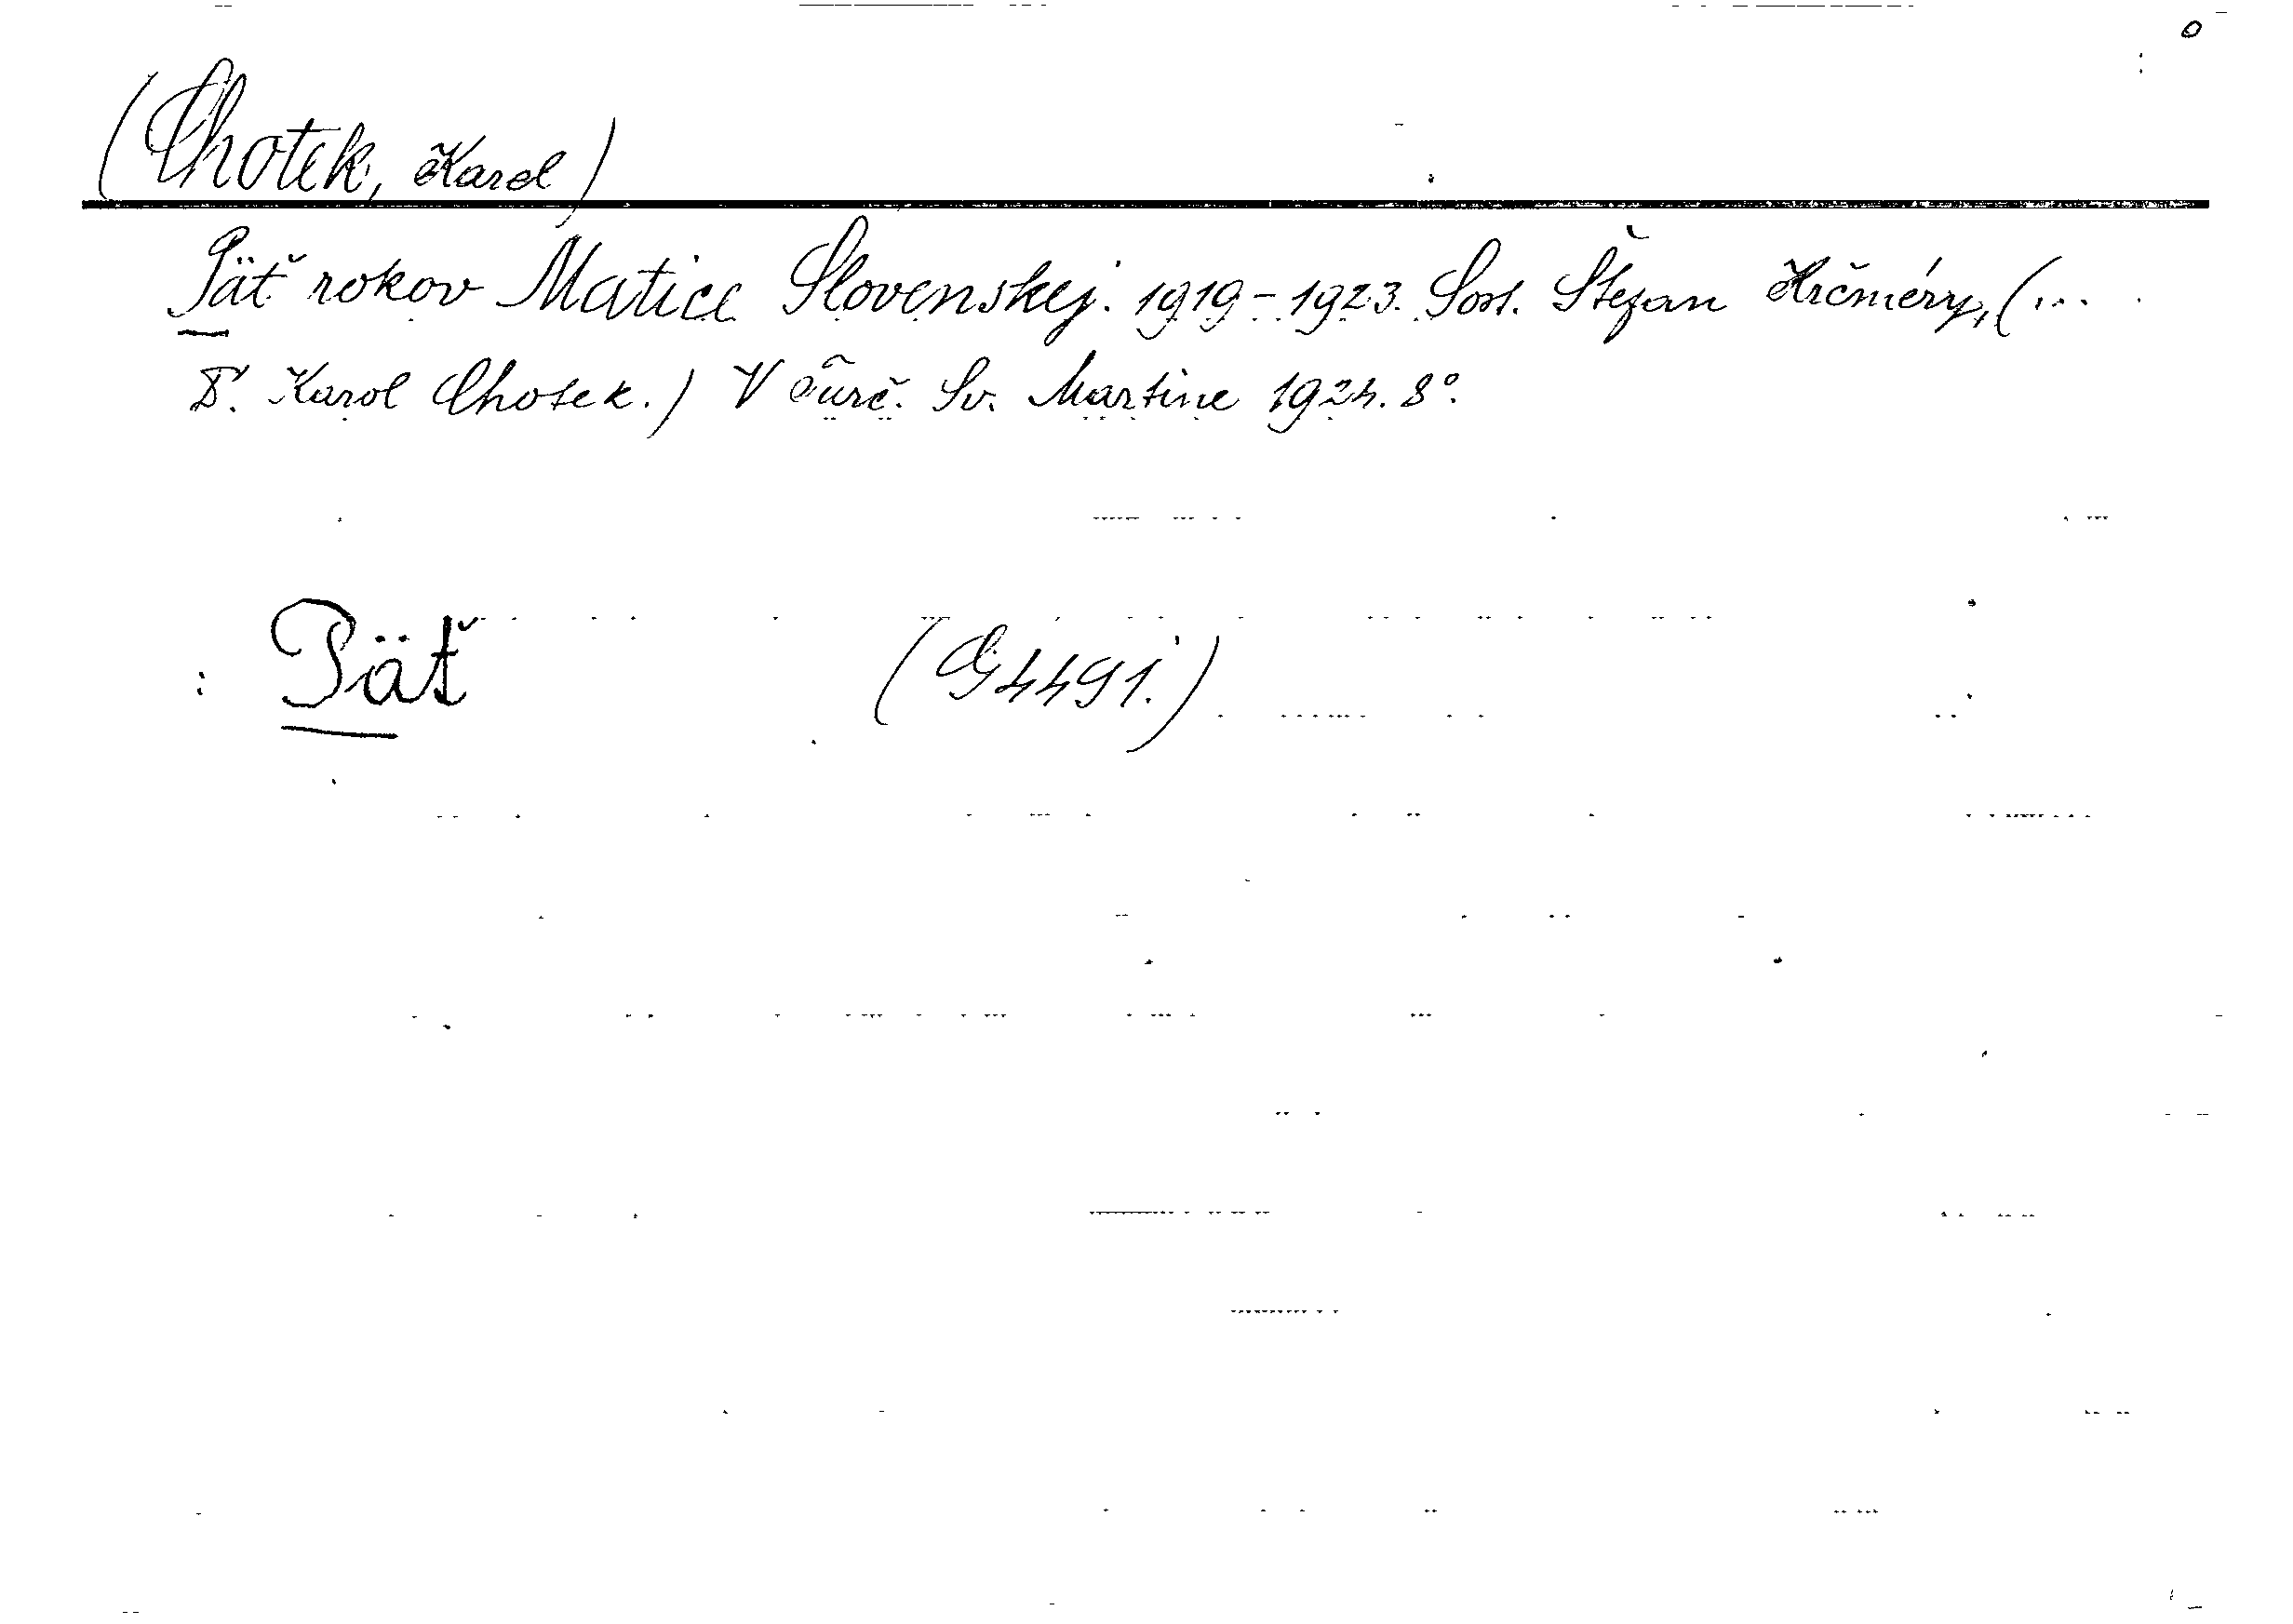 (Chotek, Karel)
Päť rokov Matice Slovenskej. 1919-1923. Sost. Štefan Krčméry, (...
Dr. Karol Chotek.) V Turč. Sv. Martine 1924. 8°.
Päť (G 4491.)